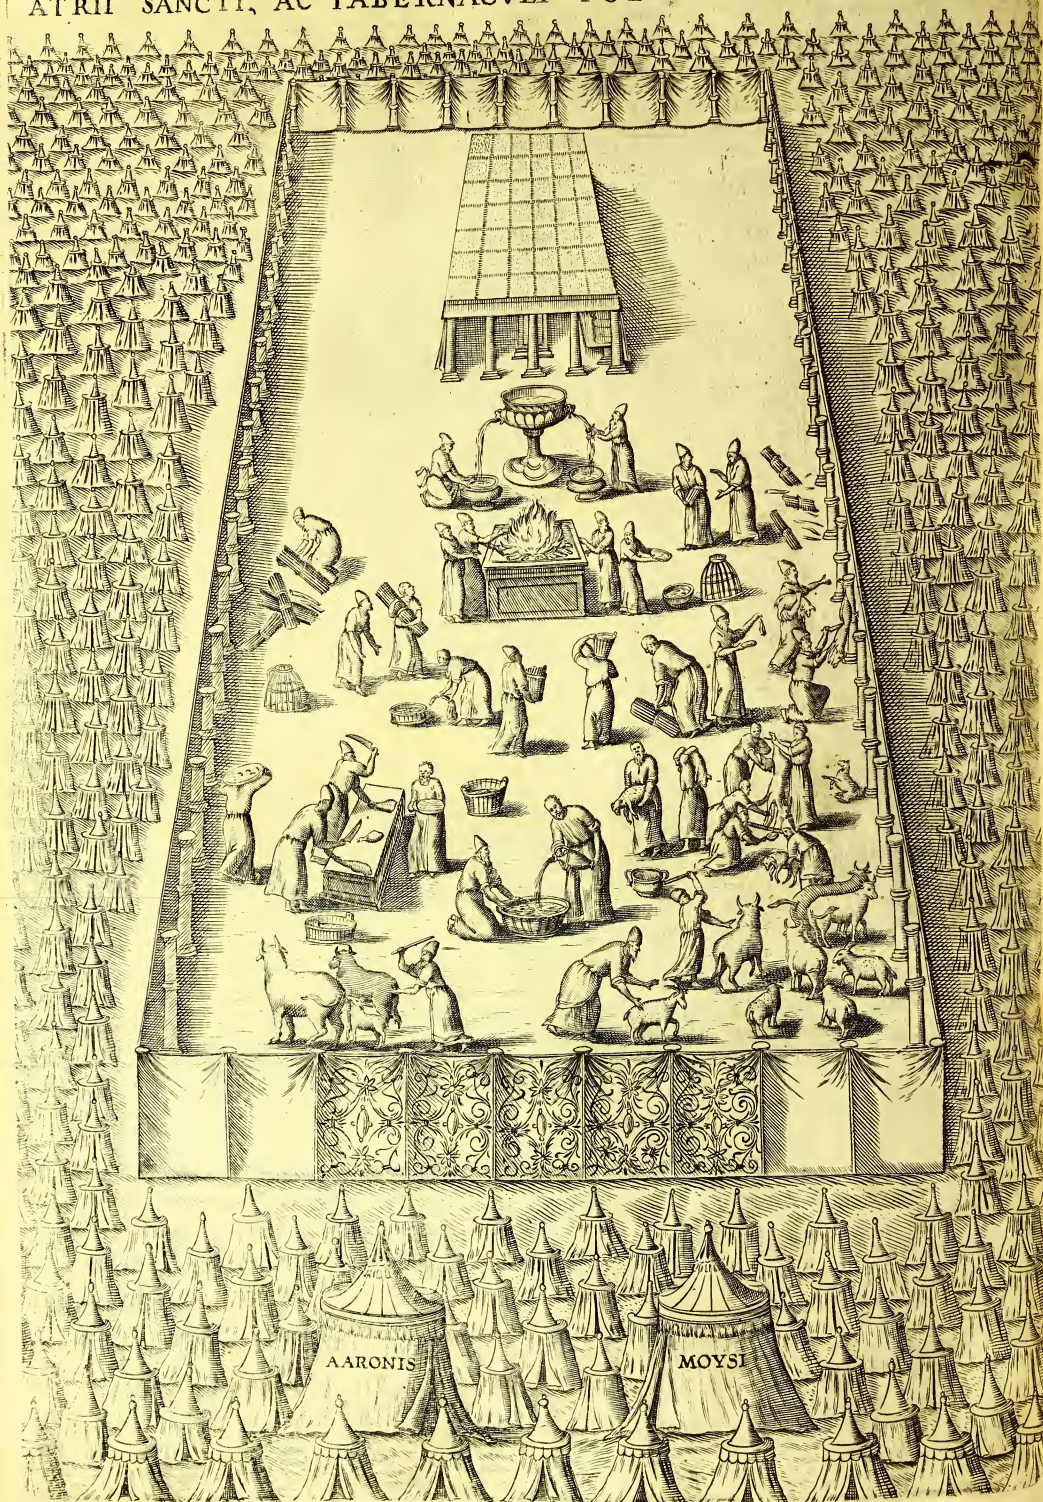 ATRII SANCTI, AC TABERNACVLI
AARONIS
MOYSI